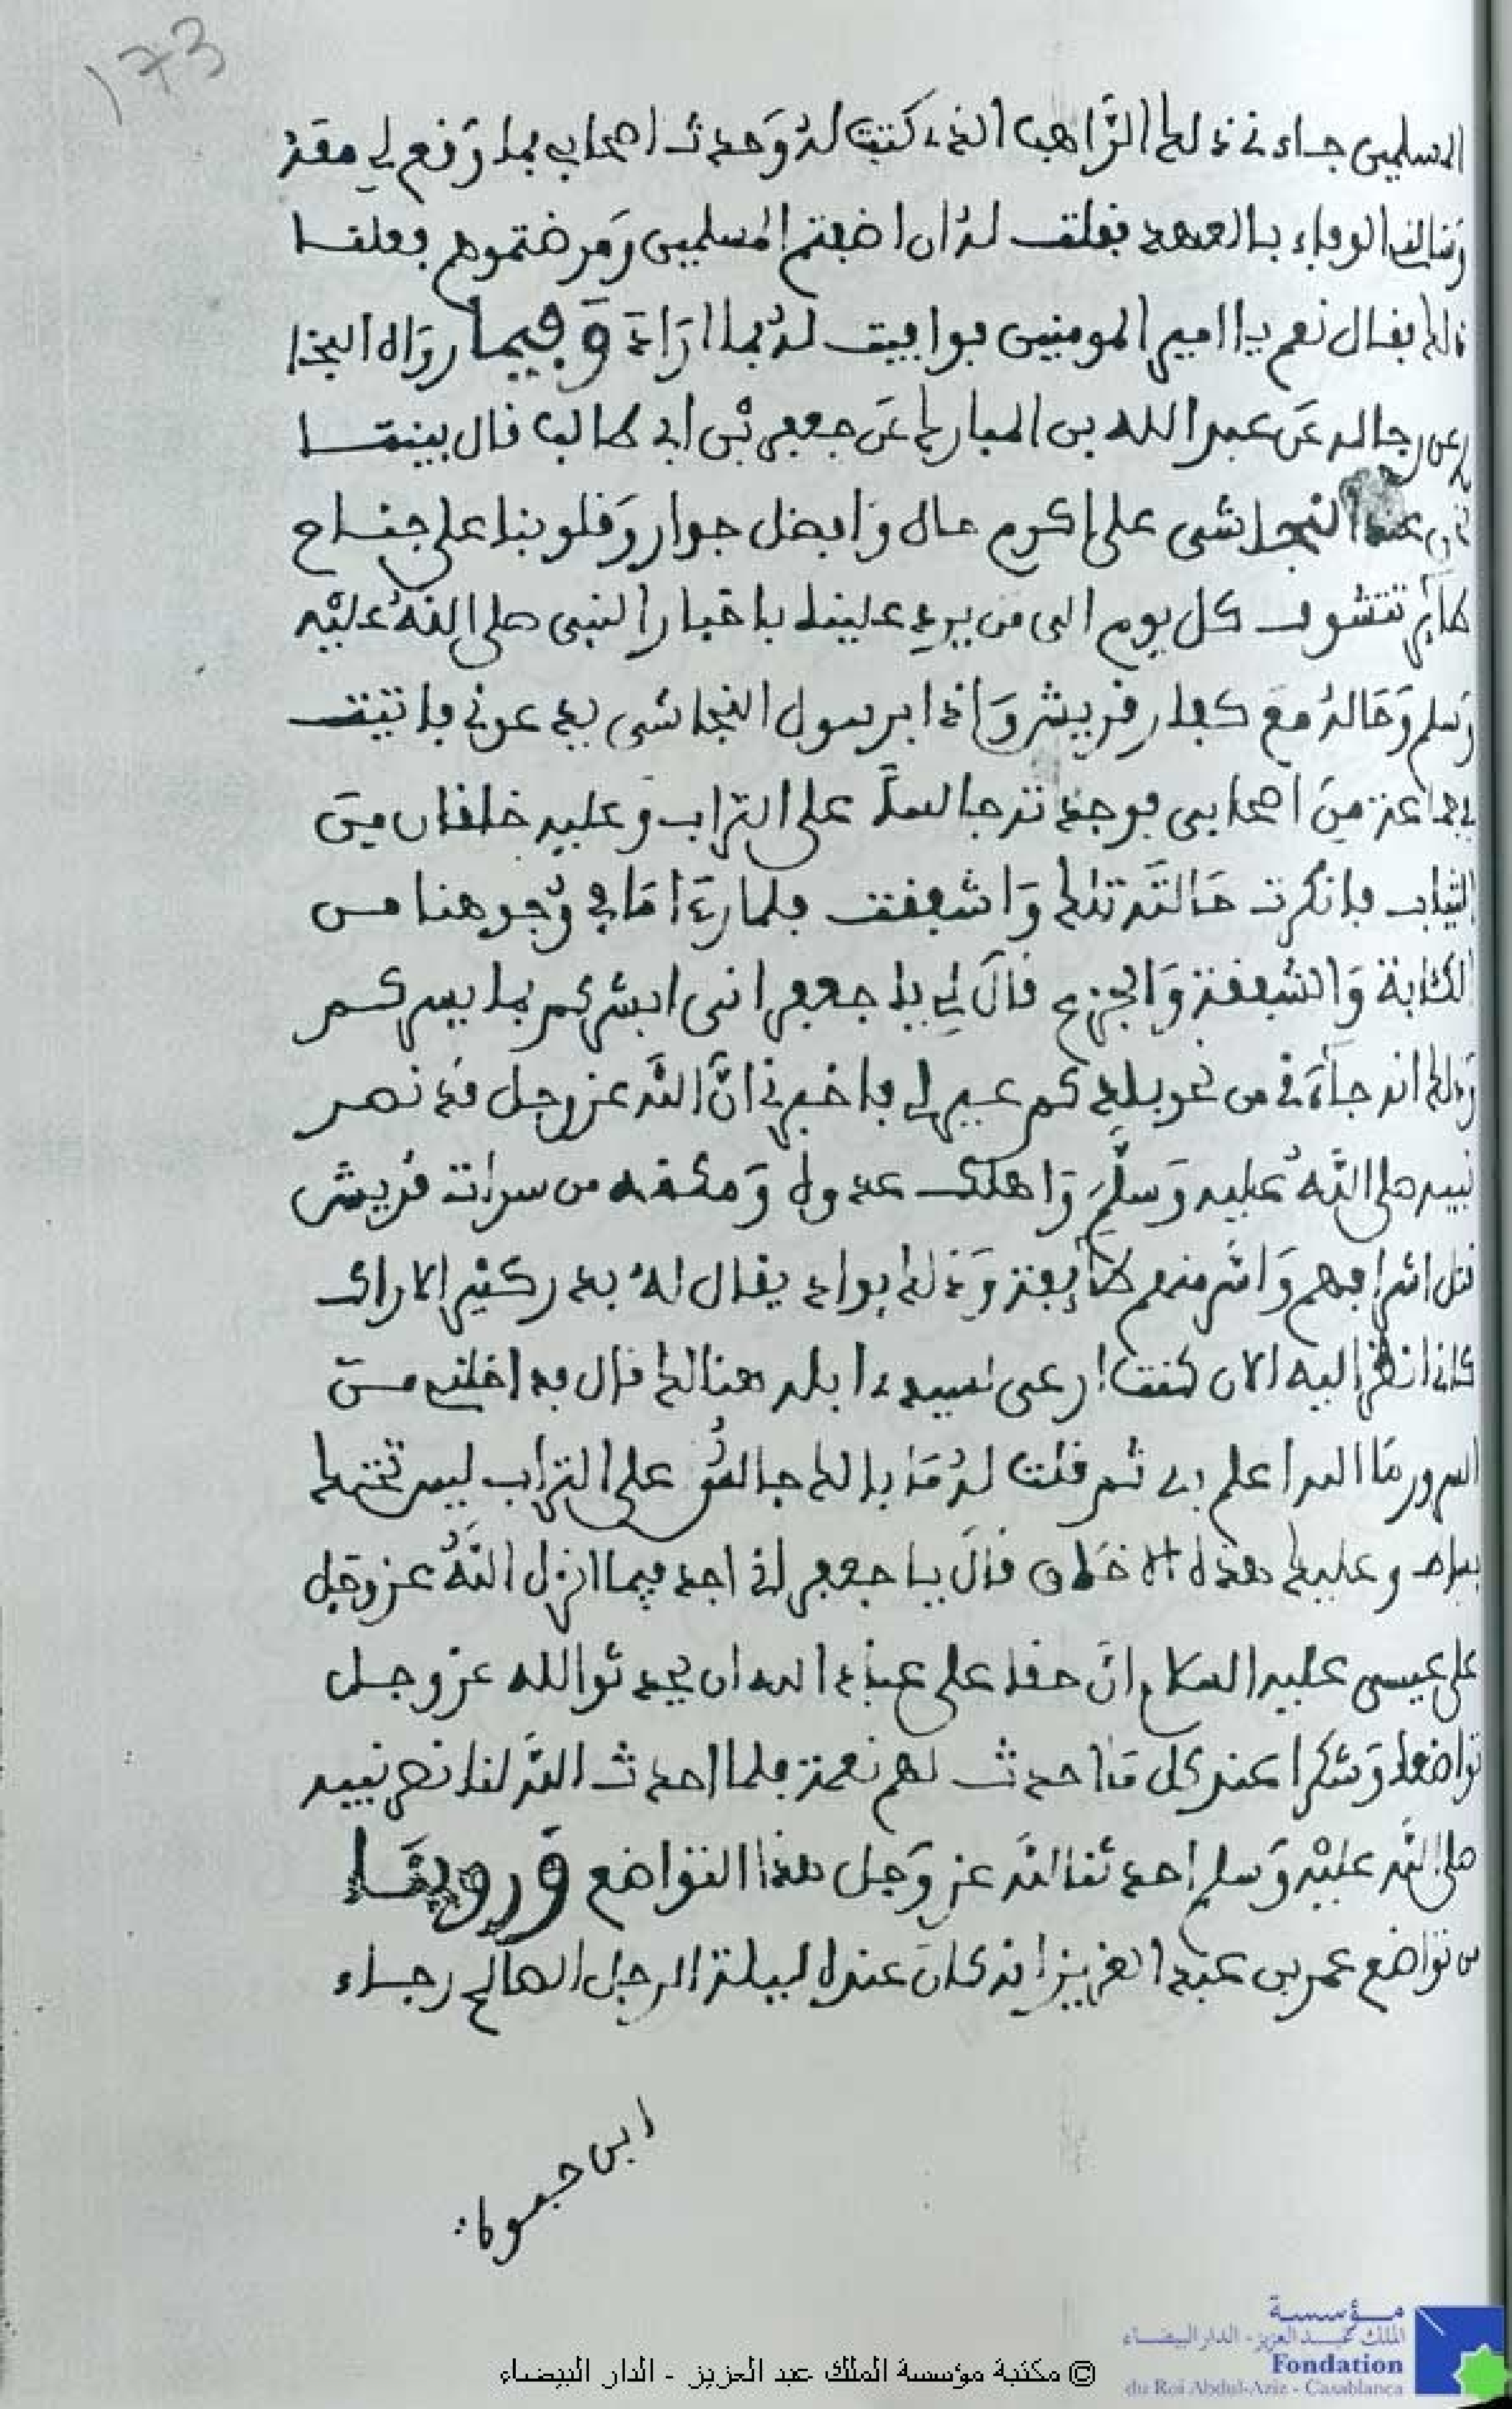 173
المسلمين جاءني ذلك الراهب الذي كتبت له وحدث اصحابي بما وقع لي معه
وسالني الوفاء بالعهد فقلت له ان اضفتم المسلمين ومرضتموهم فعلنا
ذلك فقال نعم يا امير المومنين فوافيت له بما اراده وفيما رواه البخا
ري عن رجاله عن عبد الله بن المبارك عن جعفر بن ابي طالب قال بينما
نحن عند النجاشي على اكرم حال وافضل جوار وقلوبنا على جناح
طاير نتشوف كل يوم الى من يرد علينا باخبار النبي صلى الله عليه
وسلم وحاله مع كفار قريش واذا برسول النجاشي يدعوني فاتيت
في جماعة من اصحابي فوجدته جالسا على التراب وعليه خلقان من
الثياب فانكرت حالته تلك واشفقت فلما رءا ما في وجوهنا من
الكئابة والشفقة والجزع قال لي يا جعفر اني ابشركم بما يسركم
وذلك انه جاءني من نحو بلادكم عير لي فاخبرني ان الله عز وجل قد نصر
نبيه صلى الله عليه وسلم واهلك عدوه ومكنه من سرات قريش
قتل اشرافهم واسر منهم طايفة وذلك بواد يقال له بدر كثير الاراك
كاني انظر اليه الان كنت ارعى لسيدي ابله هنالك قال فداخلني من
السرور ما الله اعلم به ثم قلت له ما بالك جالس على التراب ليس تحتك
بساط وعليك هذه الاخلاق قال يا جعفر اني اجد فيما انزل الله عز وجل
على عيسى عليه السلام ان حقا على عباد الله ان يحدثو الله عز وجل
تواضعا وشكرا عند كل ما احدث لهم نعمة فلما احدث الله لنا نصر نبيه
صلى الله عليه وسلم احدثنا لله عز وجل هذا التواضع وروينا
من تواضع عمر بن عبد العزيز انه كان عنده ليلة الرجل الصالح رجاء
ابن حيوة
مؤسسة
الملك عبد العزيز - الدار البيضاء
Fondation
du Roi Abdul-Aziz - Casablanca
© مكتبة مؤسسة الملك عبد العزيز - الدار البيضاء